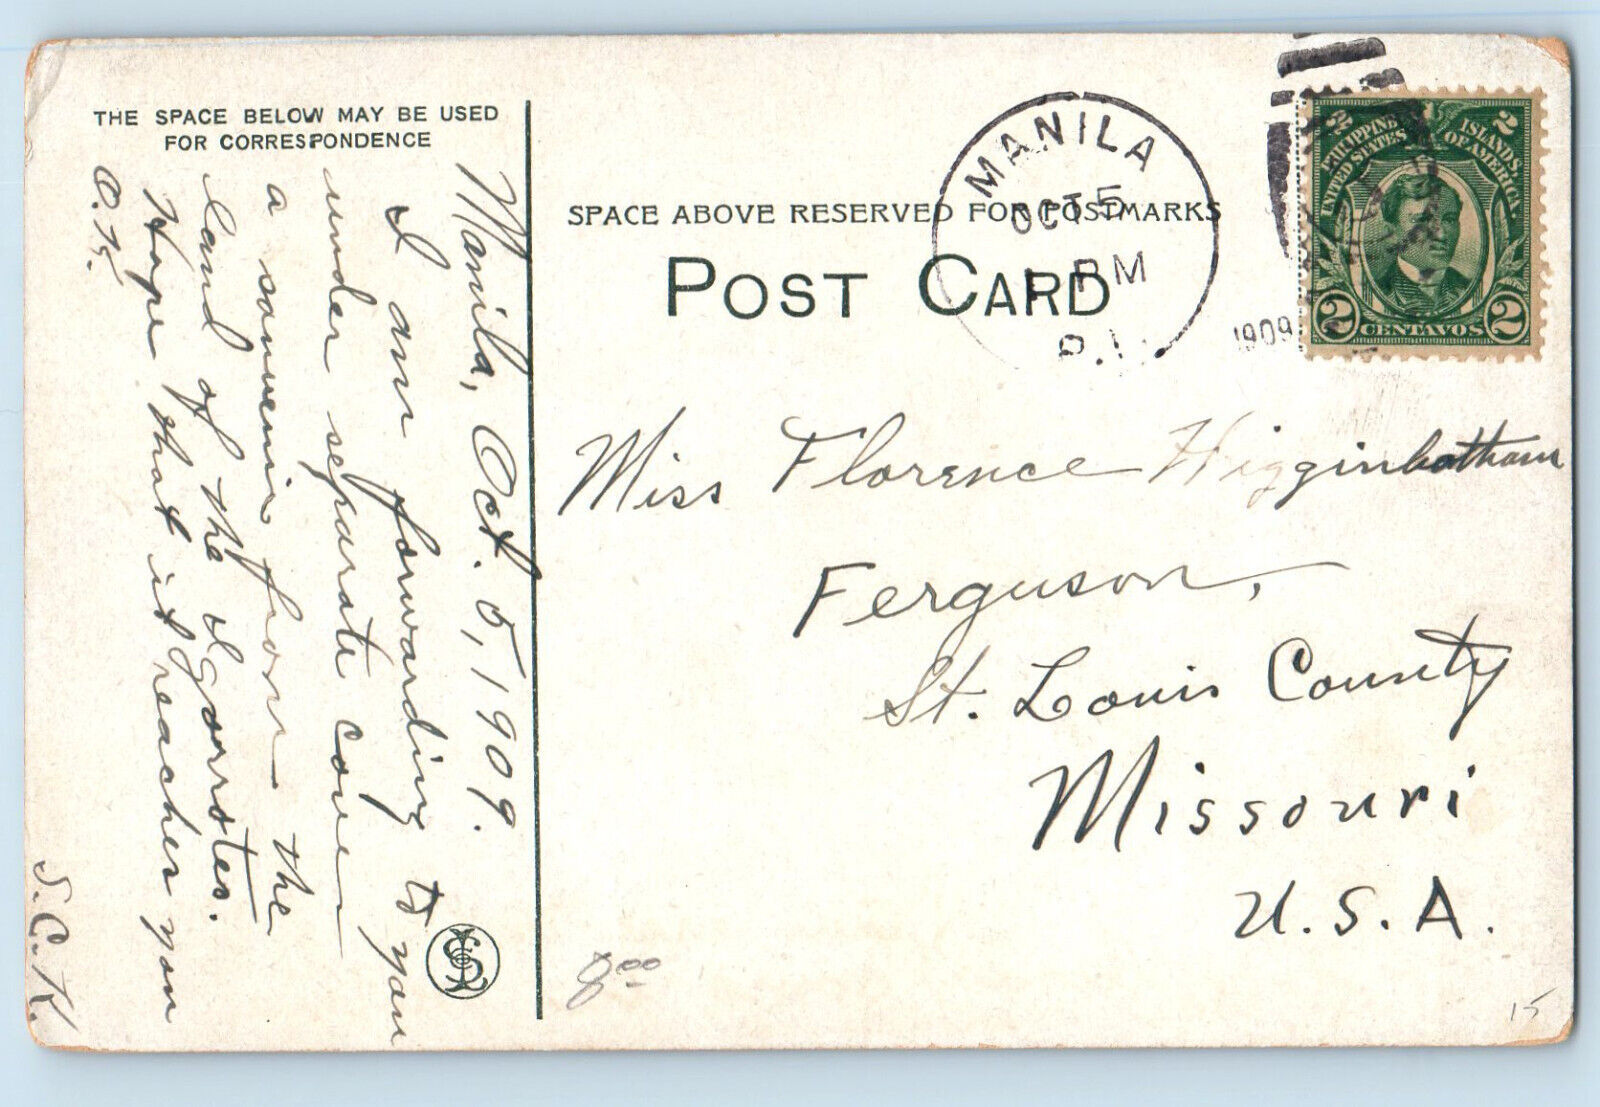 THE SPACE BELOW MAY BE USED
FOR CORRESPONDENCE
Manila, Oct. 5, 1909.
I am forwarding to you
under separate cover
a souvenir from the
land of the Igorrotes.
Hope that it reaches you
O.K.
S.C.K.
SPACE ABOVE RESERVED FOR POSTMARKS
POST CARD
MANILA
OCT 5
1 PM
P.I.
1909
2 2
PHILIPPINE ISLANDS
UNITED STATES OF AMERICA
2 CENTAVOS 2
Miss Florence Higginbotham
Ferguson,
St. Louis County
Missouri
U.S.A.
800
15